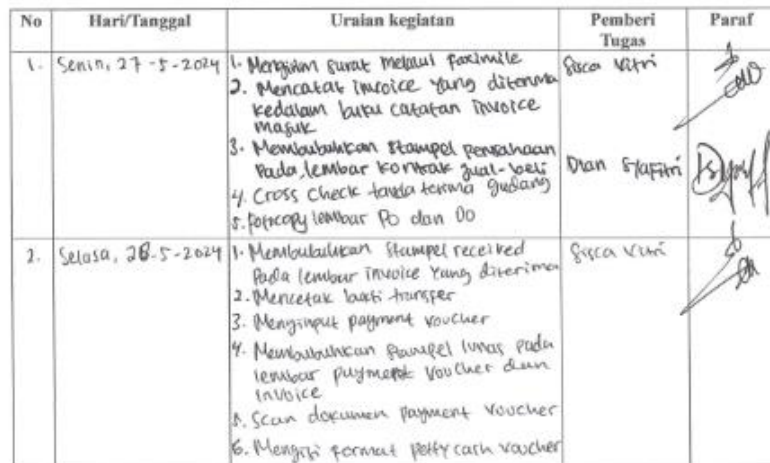 No Hari/Tanggal Uraian kegiatan Pemberi Tugas Paraf
1. Senin, 27-5-2024 1. Mengirim surat melalui faximile Sisca Vitri
2. Mencatat invoice yang diterima
kedalam buku catatan invoice
masuk
3. Membubuhkan stampel perusahaan
pada lembar kontrak jual-beli Dian Syafitri
4. Cross check tanda terima gudang
5. fotocopy lembar PO dan DO
2. Selasa, 28-5-2024 1. Membubuhkan stampel received Sisca Vitri
pada lembar invoice yang diterima
2. Mencetak bukti transfer
3. Menginput payment voucher
4. Membubuhkan stampel lunas pada
lembar payment voucher dan
invoice
5. Scan dokumen payment voucher
6. Mengisi format petty cash voucher